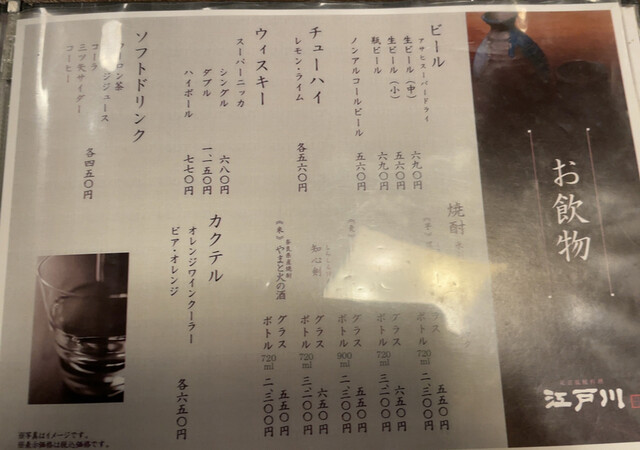 お飲物
名代鰻蒲焼
江戸川
ビール
アサヒスーパードライ
生ビール（中） 六九〇円
生ビール（小） 五六〇円
瓶ビール 六九〇円
ノンアルコールビール 五六〇円
チューハイ
レモン・ライム 各五六〇円
ウィスキー
スーパーニッカ
シングル 六八〇円
ダブル 一、一五〇円
ハイボール 七七〇円
ソフトドリンク
ウーロン茶
オレンジジュース
コーラ
三ツ矢サイダー
コーヒー
各四五〇円
焼酎
グラス 五五〇円
ボトル 720ml 二、三〇〇円
グラス 六五〇円
ボトル 720ml 三、二〇〇円
グラス 五五〇円
ボトル 900ml 二、三〇〇円
知心剣
グラス 六五〇円
ボトル 720ml 三、二〇〇円
《米》
奈良県産焼酎
やまと火の酒
グラス 五五〇円
ボトル 720ml 二、三〇〇円
カクテル
オレンジワインクーラー
ビア・オレンジ
各六五〇円
※写真はイメージです。
※表示価格は税込価格です。